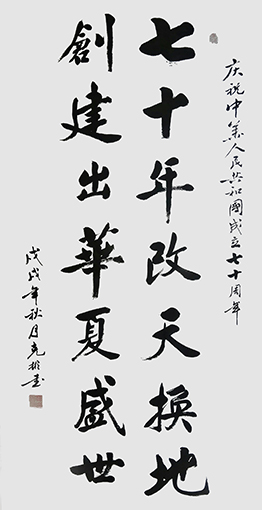 庆祝中华人民共和國成立七十周年
七十年改天換地
創建出華夏盛世
戊戌年秋月克彬書